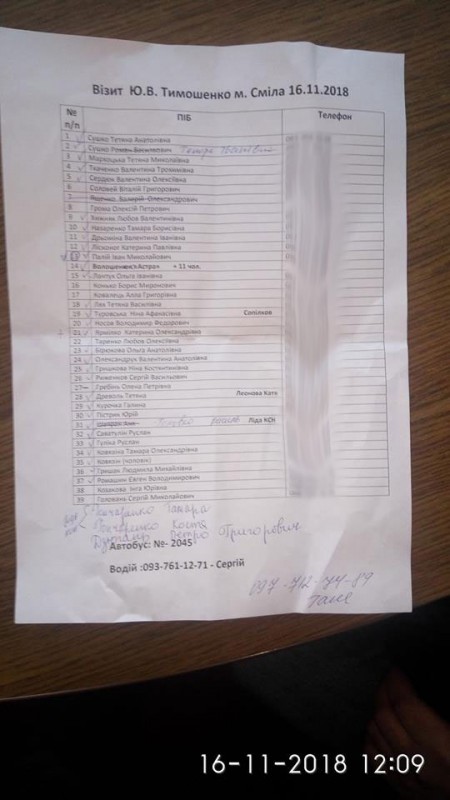 Візит Ю.В. Тимошенко м. Сміла 16.11.2018
№ п/п ПІБ Телефон
1 Сушко Тетяна Анатоліївна
2 Сушко Роман Васильович Тамара
3 Маркоцька Тетяна Миколаївна
4 Ткаченко Валентина Трохимівна
5 Сердюк Валентина Олексіївна
6 Соловей Віталій Григорович
7 Олександрович
8 Грома Олексій Петрович
9 Любов Валентинівна
10 Назаренко Тамара Борисівна
11 Дрьоміна Валентина Іванівна
12 Катерина Павлівна
13 Палій Іван Миколайович
14 Волошенко «Астра» + 11 чол.
15 Лаптух Ольга Іванівна
16 Конько Борис Миронович
17 Ковалець Алла Григорівна
18 Лях Тетяна Василівна
19 Туровська Ніна Афанасівна Сопілков
20 Носав Володимир Федорович
21 Ярмілко Катерина Олександрівна
22 Таренко Любов Олексіївна
23 Бірюкова Ольга Анатоліївна
24 Олександрук Валентина Анатоліївна
25 Гришкова Ніна Костянтинівна
26 Риженков Сергій Васильович
27 Гребінь Олена Петрівна
28 Древоль Тетяна Леонова Катя
29 Курочка Галина
30 Пістрик Юрій
31 Ліда КСН
32 Саватьпін Руслан
33 Гуліка Руслан
34 Ковязіна Тамара Олександрівна
35 Ковязін (чоловік)
36 Гришак Людмила Михайлівна
37 Ромашин Євген Володимирович
38 Козакова Інга Юріївна
39 Головань Сергій Миколайович
Гончаренко Тамара
Гончаренко Костя
Петро Григорович
Автобус: №- 2045
Водій :093-761-12-71 - Сергій
097-712-74-89
Таня
16-11-2018 12:09